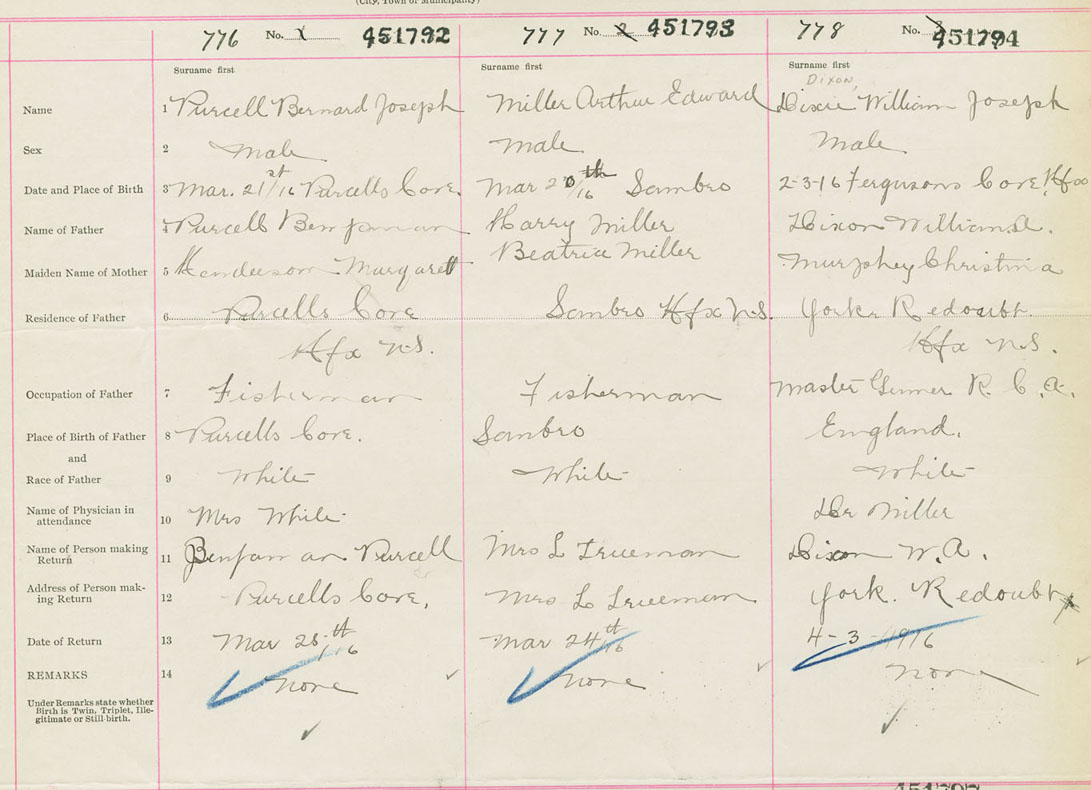 (City, Town or Municipality)
776 No. 1 451792 777 No. 2 451793 778 No. 3 451794
Surname first Surname first Surname first
DIXON
Name 1 Purcell Bernard Joseph Miller Arthur Edward Dixie William Joseph
Sex 2 Male Male Male
Date and Place of Birth 3 Mar. 21st/16 Purcells Cove. Mar 20th/16 Sambro 2-3-16 Fergusons Cove Hfx
Name of Father 4 Purcell Benjaman Harry Miller Dixon William A.
Maiden Name of Mother 5 Henderson Margarett Beatrice Miller Murphey Christina
Residence of Father 6 Purcells Cove Sambro Hfx N.S. York Redoubt
Hfx N.S. Hfx N.S.
Occupation of Father 7 Fisherman Fisherman Master Gunner R. C. A.
Place of Birth of Father 8 Purcells Cove. Sambro England.
and
Race of Father 9 White White White
Name of Physician in
attendance 10 Mrs White Dr Miller
Name of Person making
Return 11 Benjaman Purcell Mrs L Trueman Dixon W. A.
Address of Person mak-
ing Return 12 Purcells Cove. Mrs L Trueman York. Redoubt
Date of Return 13 Mar 28th/16 Mar 24th/16 4-3-1916
REMARKS 14 none none none
Under Remarks state whether
Birth is Twin, Triplet, Ille-
gitimate or Still-birth.
451797